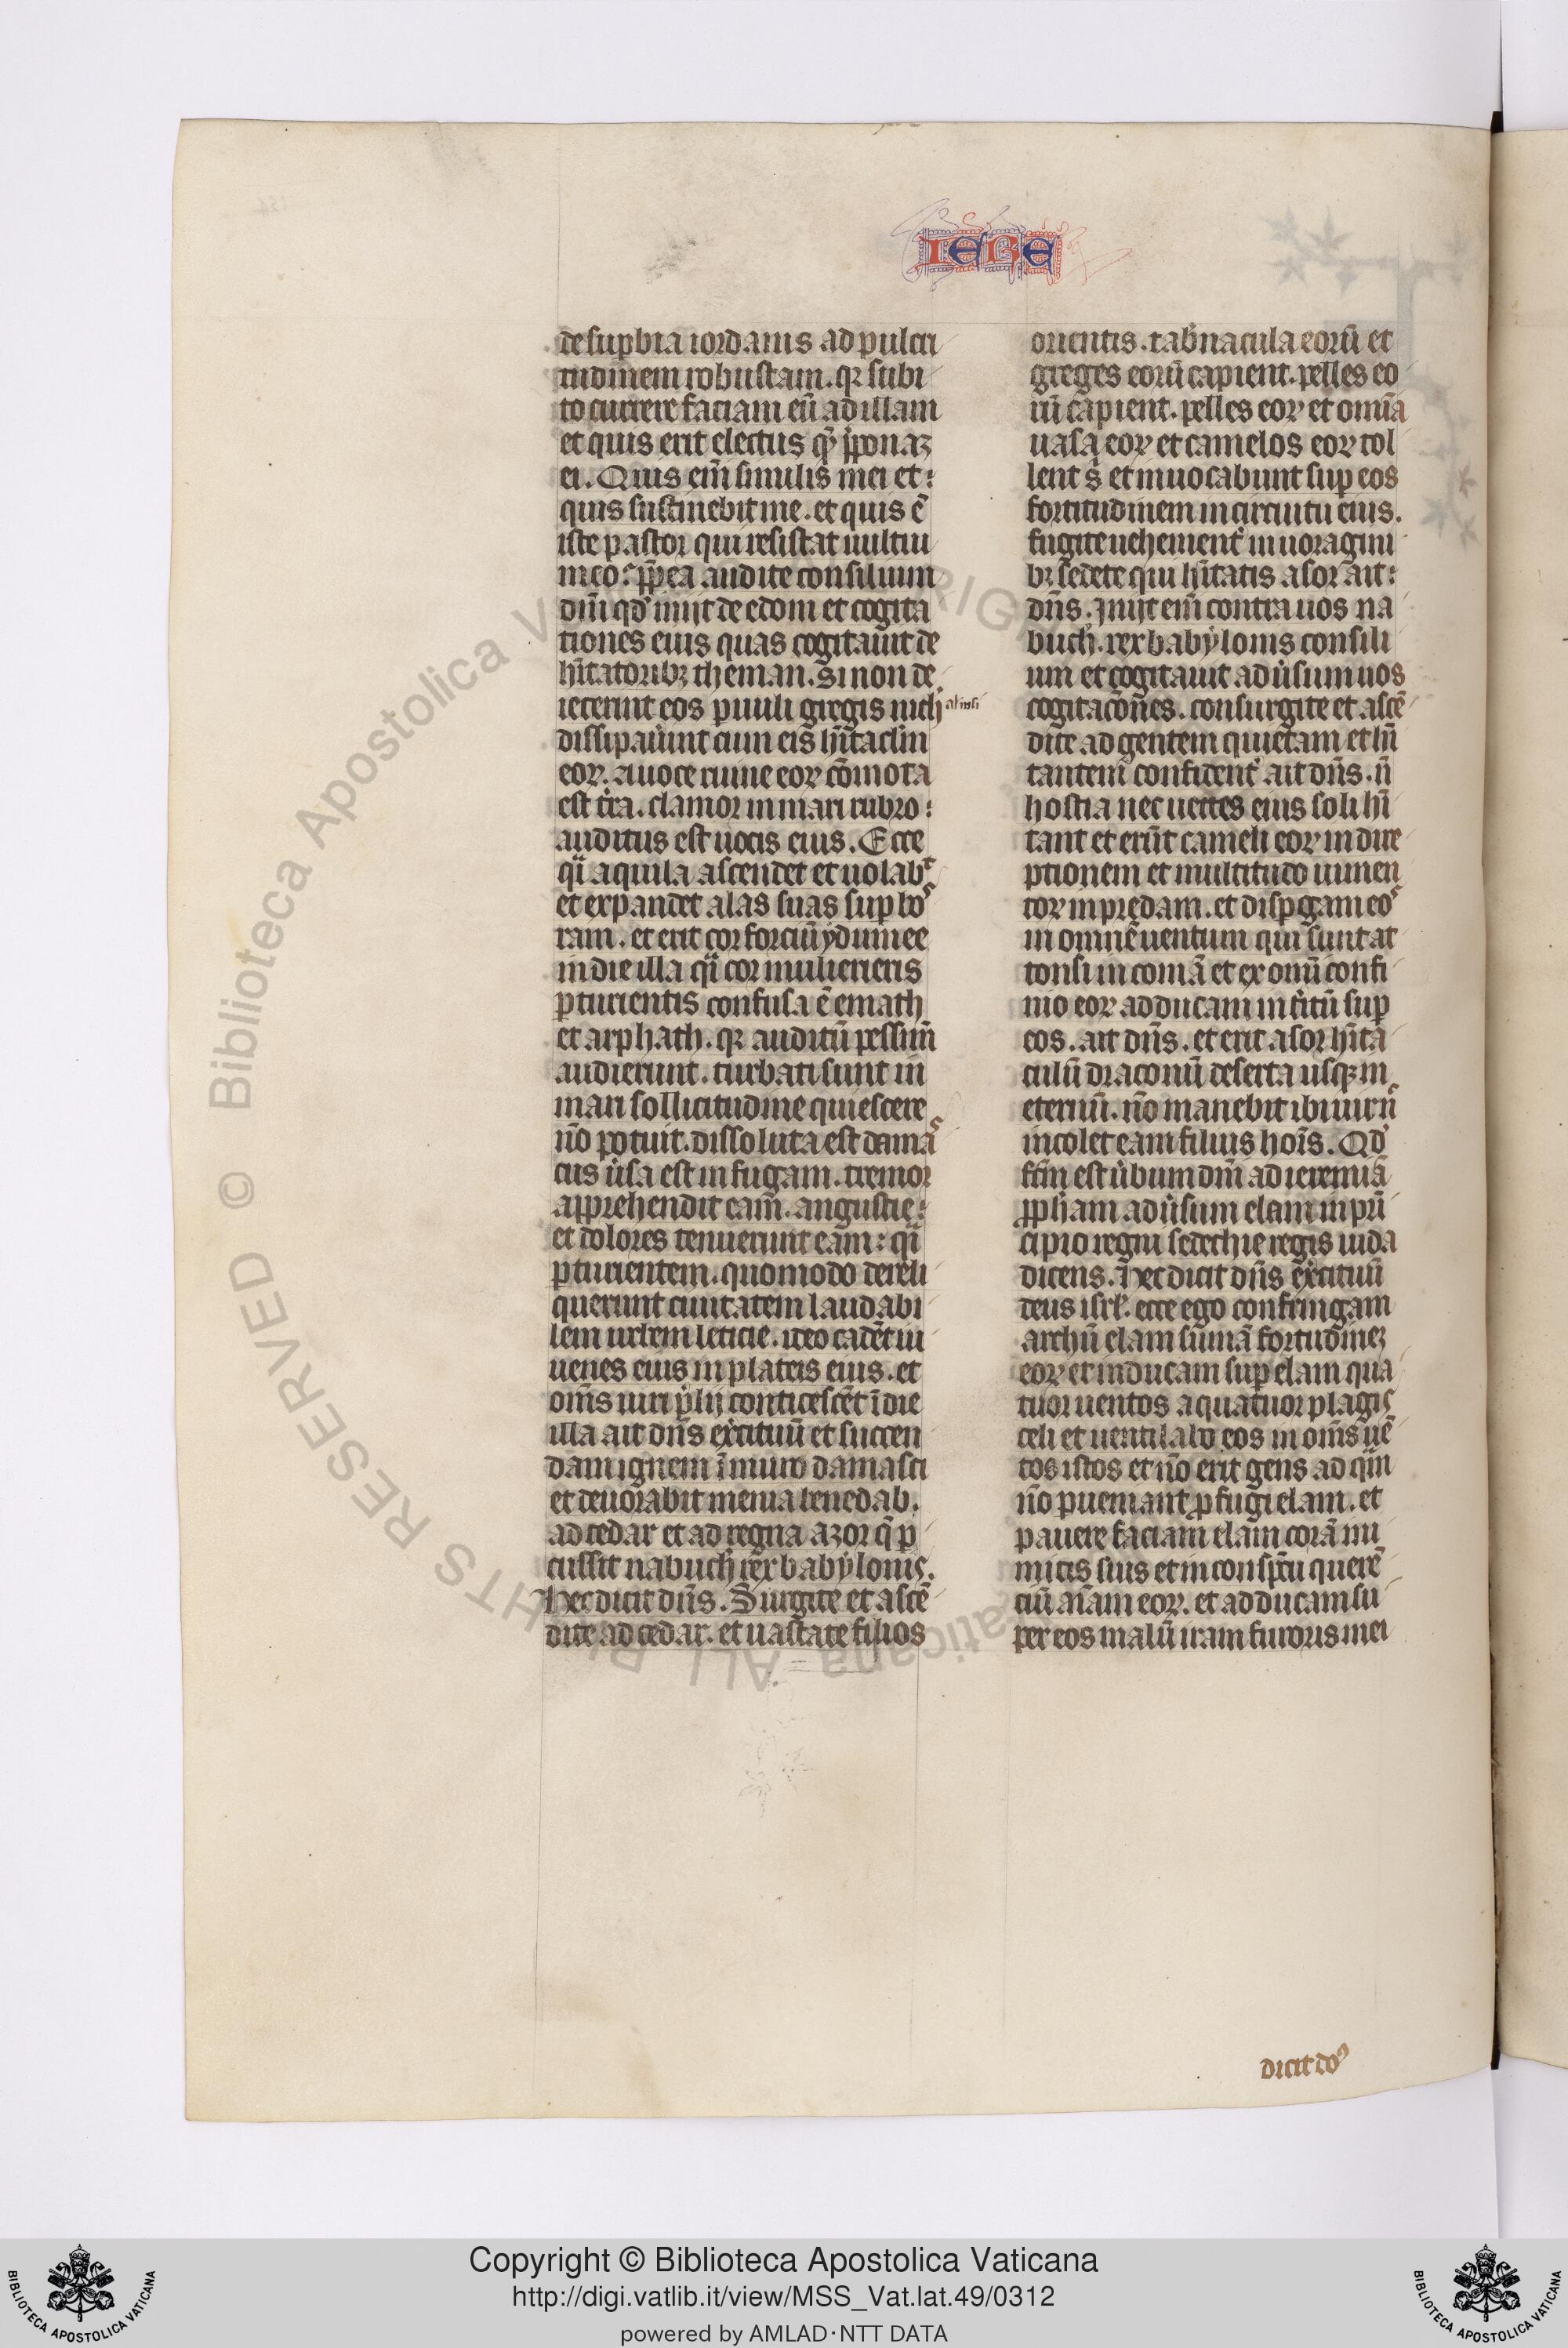 IERE
de sup̱bia iordanis ad pulcri
tudinem robustam. qꝛ subi
to currere faciam eū ad illam
et quis erit electus q̄ p̄ponaꝫ
ei. Quis em̄ similis mei et:
quis sustinebit me. et quis ē
iste pastor qui resistat uultui
meo: ꝓpẜea audite consilium
dn̄i qd̓ inijt de edom et cogita
tiones eius quas cogitauit de
hītatoribꝫ theman. Si non de
iecerint eos paruuli gregis nich
al' nisi
dissipauerint cum eis hītaclm̄
eoꝝ. a uoce ruine eoꝝ cōmota
est tr̄a. clamor in mari rubro:
auditus est uocis eius. Ecce
q̄i aquila ascendet et uolabᵗ
et expandet alas suas sup̱ boˢ
ram. et erit cor forciū ydumee
in die illa q̄i cor mulieris
p̱turientis confusa ē emath
et arphath. qꝛ auditū pessim̄
audierunt. turbati sunt in
mari sollicitudine quiescere
nō potuit. dissoluta est damaˢ
cus ūsa est in fugam. tremor
apprehendit eam. angustie:
et dolores tenuerunt eam: q̄i
p̱turientem. quomodo dereli
querunt ciuitatem laudabi
lem urbem leticie. ideo cadēt iu
uenes eius in plateis eius. et
om̄s uiri p̱lij conticescēt ī die
illa ait dn̄s exercituū et succen
dam ignem ī muro damasci
et deuorabit menia benedab.
ad cedar et ad regna azor q̄ p̱
cussit nabuch̓ rex babylonis.
Hec dicit dn̄s. Surgite et ascē
dite ad cedar. et uastate filios
orientis. tab̓nacula eorū et
greges eorū capient. pelles eo
rū capient. pelles eoꝝ et omīa
uasa eoꝝ et camelos eoꝝ tol
lent s̓ et inuocabunt sup̱ eos
fortitudinem in circuitu eius.
fugite uehement̓ in uoragini
bꝫ sedete qui hītatis asor ait:
dn̄s. Inijt em̄ contra uos na
buch̓. rex babylonis consili
um et cogitauit adūsum uos
cogitacōnes. consurgite et ascē
dite ad gentem quietam et hī
tantem confident̓ ait dn̄s. n̄
hostia nec uectes eius soli hī
tant et erūt cameli eoꝝ in dire
ptionem et multitudo iumen
toꝝ in predam. et disp̱gam eoˢ
in omnē uentum qui sunt at
tonsi in comā et ex omī confi
nio eoꝝ adducam int̓itū sup̱
eos. ait dn̄s. et erit asor hīta
culū draconū deserta usqꝫ in
eternū. nō manebit ibi uir n̄
incolet eam filius hoīs. Qd̓
fcm̄ est ūbum dn̄i ad ieremiā
ꝓph̓am adūsum elam in prī
cipio regni sedechie regis iuda
dicens. Hec dicit dn̄s exercituū
deus isrł. ecce ego confringam
archū elam sūmā fortitudineꝫ
eoꝝ et inducam sup̱ elam qua
tuor uentos a quatuor plagis
celi et uentilabo eos in om̄s uē
tos istos et nō erit gens ad q̄m
nō p̱ueniant ꝓfugi elam. et
pauere faciam elam corā ini
micis suis et in conspc̄tu querē
ciū aīam eoꝝ. et adducam su
per eos malū iram furoris mei
dicit doꝰ
Copyright © Biblioteca Apostolica Vaticana
http://digi.vatlib.it/view/MSS_Vat.lat.49/0312
powered by AMLAD·NTT DATA